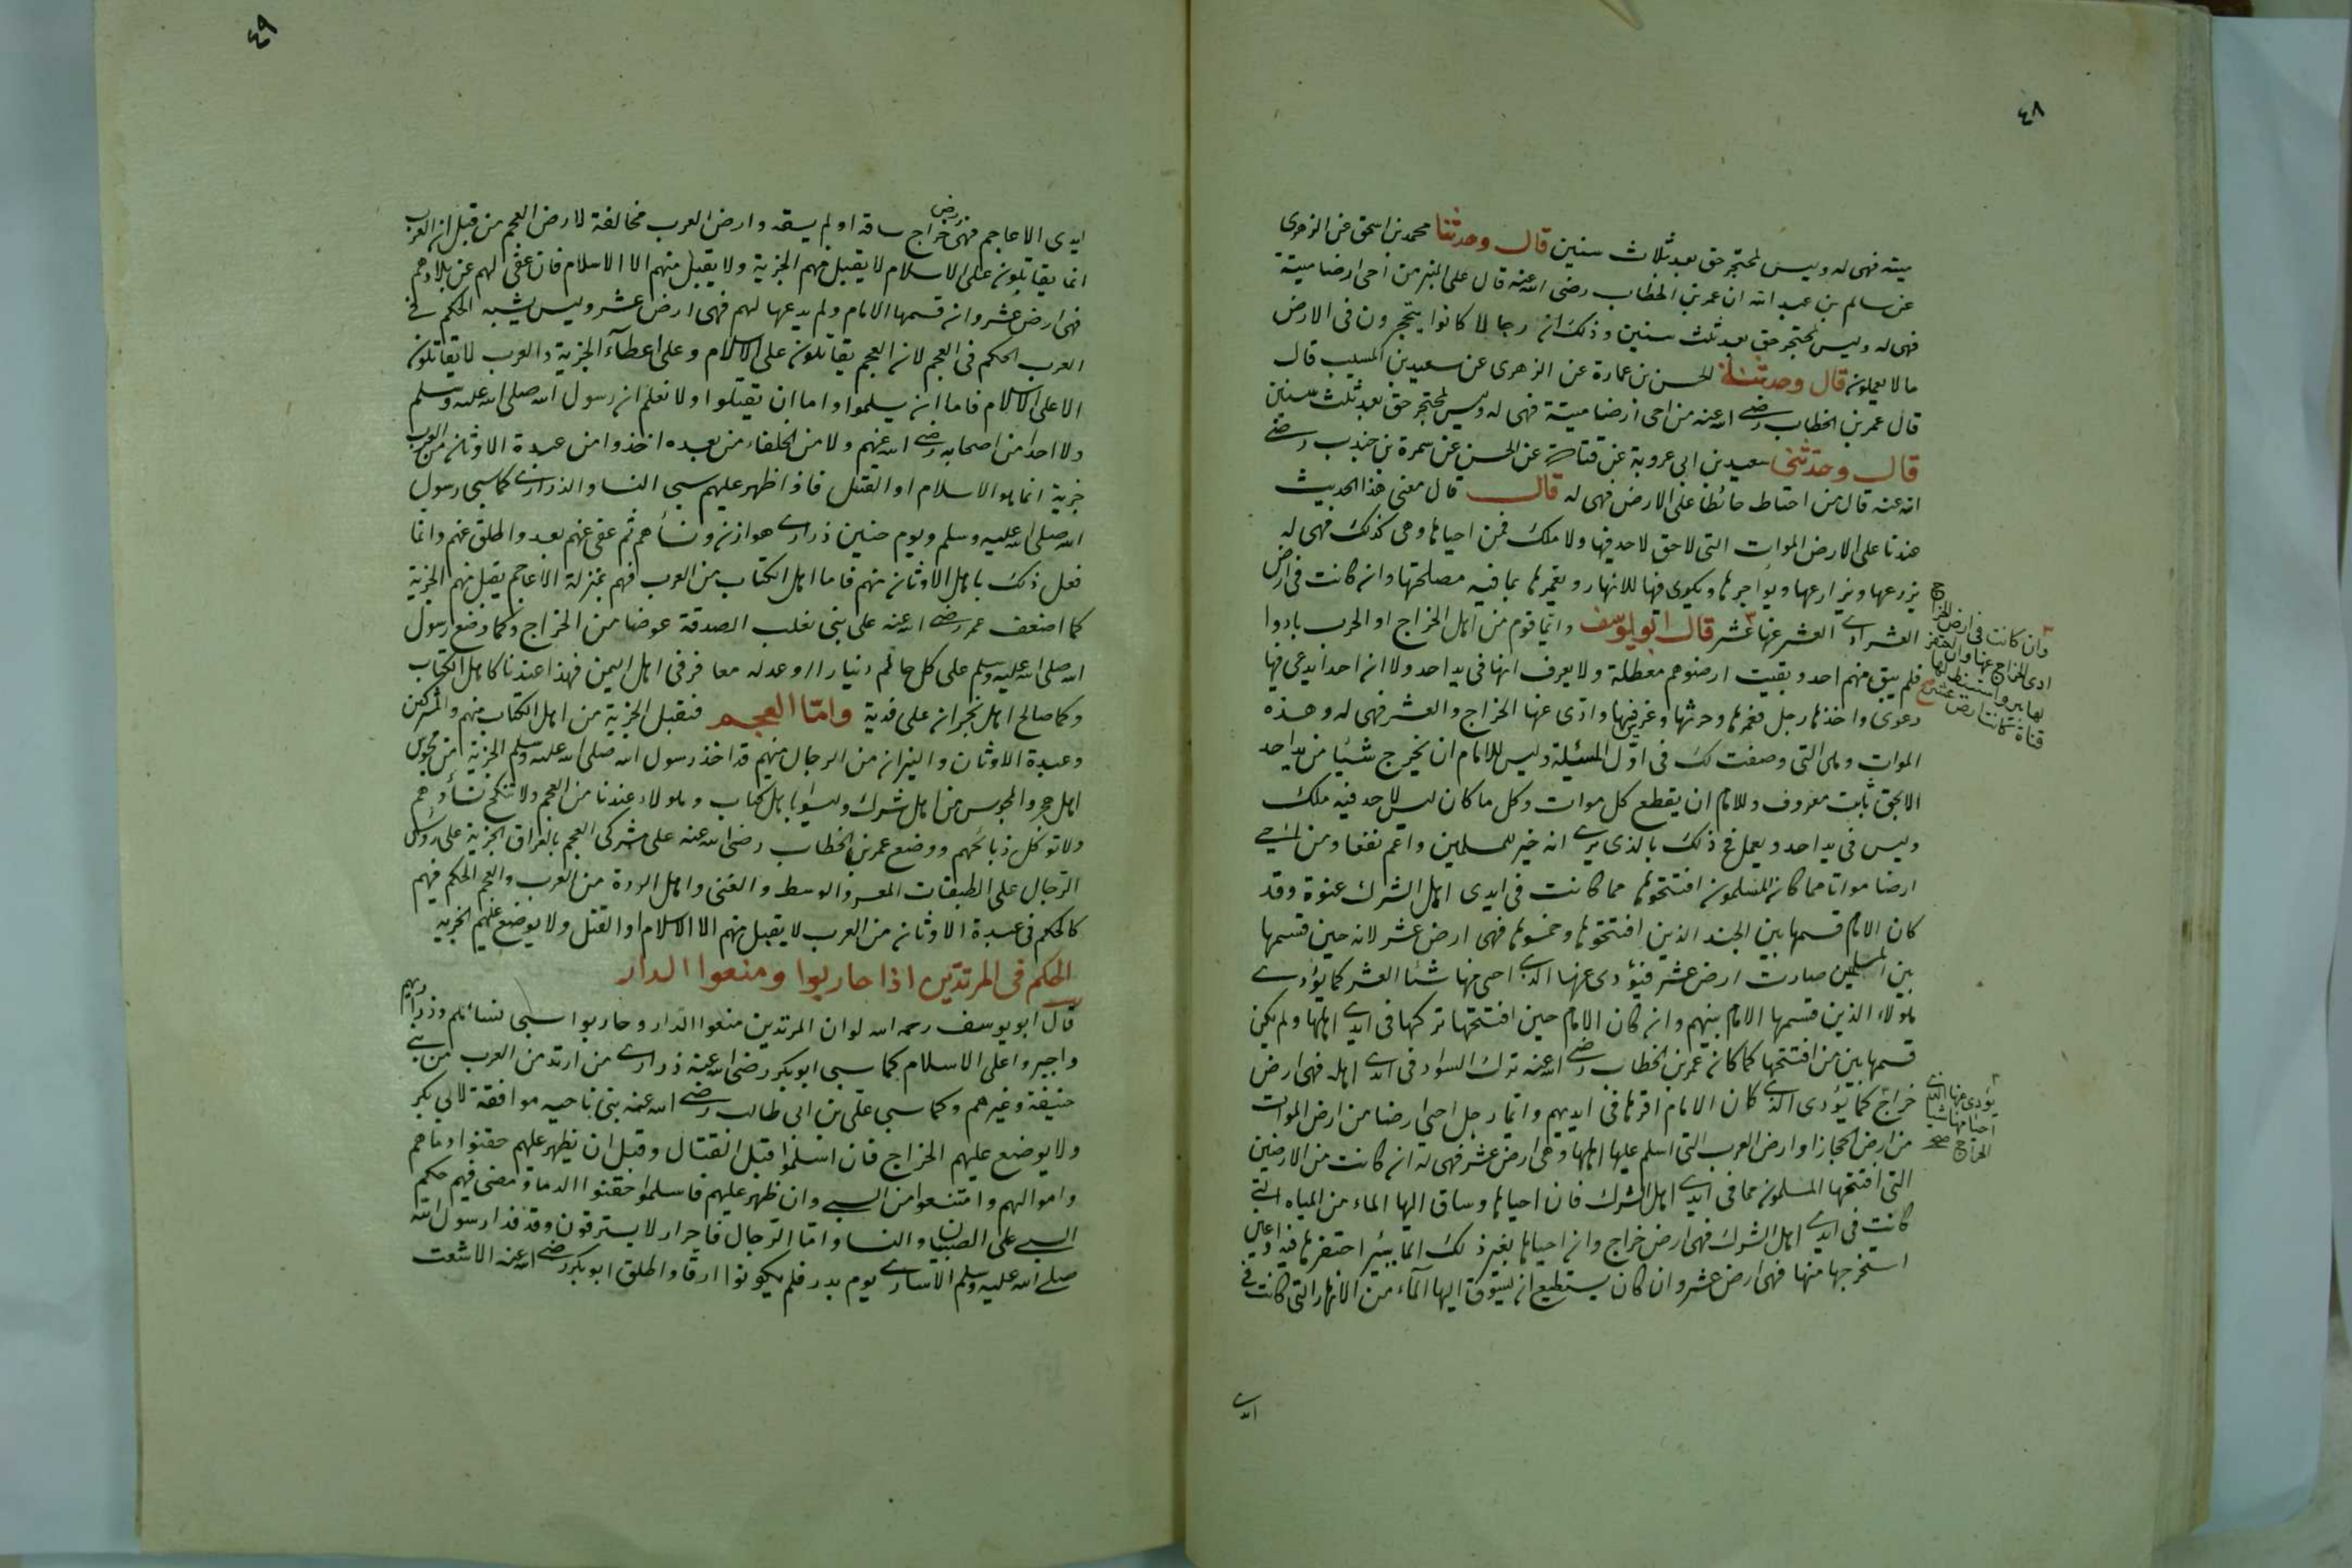 ٤٨
ميتة فهى له وليس لمحتجر حق بعد ثلاث سنين قال وحدثنا محمد بن اسحق عن الزهرى
عن سالم بن عبد الله ان عمر بن الخطاب رضى الله عنه قال على المنبر من احى ارضا ميتة
فهى له وليس لمحتجر حق بعد ثلث سنين وذلك ان رجالا كانوا يتحجرون فى الارض
ما لا يعملون قال وحدثنا الحسن بن عمارة عن الزهرى عن سعيد بن المسيب قال
قال عمر بن الخطاب رضى الله عنه من احى ارضا ميتة فهى له وليس لمحتجر حق بعد ثلث سنين
قال وحدثنى سعيد بن ابى عروبة عن قتادة عن الحسن عن سمرة بن جندب رضى
الله عنه قال من احتاط حائطا على الارض فهى له قال قال معنى هذا الحديث
عندنا على الارض الموات التى لا حق لاحد فيها ولا ملك فمن احياها وهى كذلك فهى له
يزرعها ويزارعها ويؤاجرها ويكرى فيها للانهار ويعمرها بما فيه مصلحتها وان كانت فى ارض
العشر ادى العشر عنها عشر قال ابو يوسف وايما قوم من اهل الخراج او الحرب بادوا
فلم يبق منهم احد وبقيت ارضوهم معطلة ولا يعرف انها فى يد احد ولا ان احدا يدعى فيها
دعوى واخذها رجل فعمرها وحرثها وغرس فيها وادى عنها الخراج والعشر فهى له وهذه
الموات وهى التى وصفت لك فى اول المسئلة وليس للامام ان يخرج شيئا من يد احد
الا بحق ثابت معروف وللامام ان يقطع كل موات وكل ما كان ليس لاحد فيه ملك
وليس فى يد احد ويعمل فى ذلك بالذى يرى انه خير للمسلمين واعم نفعا ومن احيى
ارضا مواتا مما كان المسلمون افتتحوها مما كانت فى ايدى اهل الشرك عنوة وقد
كان الامام قسمها بين الجند الذين افتتحوها وخمسوها فهى ارض عشر لانه حين قسمها
بين المسلمين صارت ارض عشر فيؤدى عنها الذى احى منها شئا العشر كما يؤدى
هؤلاء الذين قسمها الامام بينهم وان كان الامام حين افتتحها تركها فى ايدى اهلها ولم يكن
قسمها بين من افتتحها كما كان عمر بن الخطاب رضى الله عنه ترك السواد فى ايدى اهله فهى ارض
خراج كما يؤدى الذى كان الامام اقرها فى ايديهم وايما رجل احيى ارضا من ارض الموات
من ارض الحجاز او ارض العرب التى اسلم عليها اهلها وهى ارض عشر فهى له ان كانت من الارضين
التى افتتحها المسلمون مما فى ايدى اهل الشرك فان احياها وساق اليها الماء من المياه التى
كانت فى ايدى اهل الشرك فهى ارض خراج وان احياها بغير ذلك الما ببئر احتفرها فيه او عين
استخرجها منها فهى ارض عشر وان كان يستطيع ان يسوق اليها المآء من الانهار التى كانت فى
ايدى
وان كانت فى ارض الخراج
ادى الخراج عنها وان احتفر
لها بير او استنبط لها
قناة كانت ارض عشر صح
يؤدى عنها الذى
احيا منها شيا
الخراج صح
٤٩
ايدى الاعاجم فهى ارض خراج ساقه او لم يسقه وارض العرب مخالفة لارض العجم من قبل ان العرب
انما يقاتلون على الاسلام لا يقبل منهم الجزية ولا يقبل منهم الا الاسلام فان عفى لهم عن بلادهم
فهى ارض عشر وان قسمها الامام ولم يدعها لهم فهى ارض عشر وليس يشبه الحكم فى
العرب الحكم فى العجم لان العجم يقاتلون على الاسلام وعلى اعطآء الجزية والعرب لا يقاتلون
الا على الاسلام فاما ان يسلموا واما ان يقتلوا ولا نعلم ان رسول الله صلى الله عليه وسلم
ولا احدا من اصحابه رضى الله عنهم ولا من الخلفاء من بعده اخذوا من عبدة الاوثان من العرب
جزية انما هو الاسلام او القتل فاذا ظهر عليهم سبى النسا والذرارى كما سبى رسول
الله صلى الله عليه وسلم ويوم حنين ذرارى هوازن ونسأهم ثم عفى عنهم بعد واطلق عنهم وانما
فعل ذلك باهل الاوثان منهم فاما اهل الكتاب من العرب فهم بمنزلة الاعاجم يقبل منهم الجزية
كما اضعف عمر رضى الله عنه على بنى تغلب الصدقة عوضا من الخراج وكما وضع رسول
الله صلى الله عليه وسلم على كل حالم دينارا او عدله معافر فى اهل اليمن فهذا عندنا كاهل الكتاب
وكما صالح اهل نجران على فدية واما العجم فتقبل الجزية من اهل الكتاب منهم والمشركين
وعبدة الاوثان والنيران من الرجال منهم قد اخذ رسول الله صلى الله عليه وسلم الجزية من مجوس
اهل هجر والمجوس من اهل شرك وليسوا باهل كتاب وهؤلاء عندنا من العجم ولا تنكح نساؤهم
ولا توكل ذبائحهم ووضع عمر بن الخطاب رضى الله عنه على مشركى العجم بالعراق الجزية على رؤس
الرجال على الطبقات المعسر والوسط والغنى واهل الردة من العرب والعجم الحكم فيهم
كالحكم فى عبدة الاوثان من العرب لا يقبل منهم الا الاسلام او القتل ولا يوضع عليهم الجزيه
الحكم فى المرتدين اذا حاربوا ومنعوا الدار
قال ابو يوسف رحمه الله لو ان المرتدين منعوا الدار وحاربوا سبى نسائهم وذراريهم
واجبروا على الاسلام كما سبى ابو بكر رضى الله عنه ذرارى من ارتد من العرب من بنى
حنيفة وغيرهم وكما سبى على بن ابى طالب رضى الله عنه بنى ناحيه موافقة لابى بكر
ولا يوضع عليهم الخراج فان اسلموا قبل القتال وقبل ان يظهر عليهم حقنوا دماهم
واموالهم وامتنعوا من السبى وان ظهر عليهم فاسلموا حقنوا الدما ومضى فيهم حكم
السبى على الصبيان والنسا واما الرجال فاحرار لا يسترقون وقد فدا رسول الله
صلى الله عليه وسلم الاسارى يوم بدر فلم يكونوا ارقا واطلق ابو بكر رضى الله عنه الاشعت